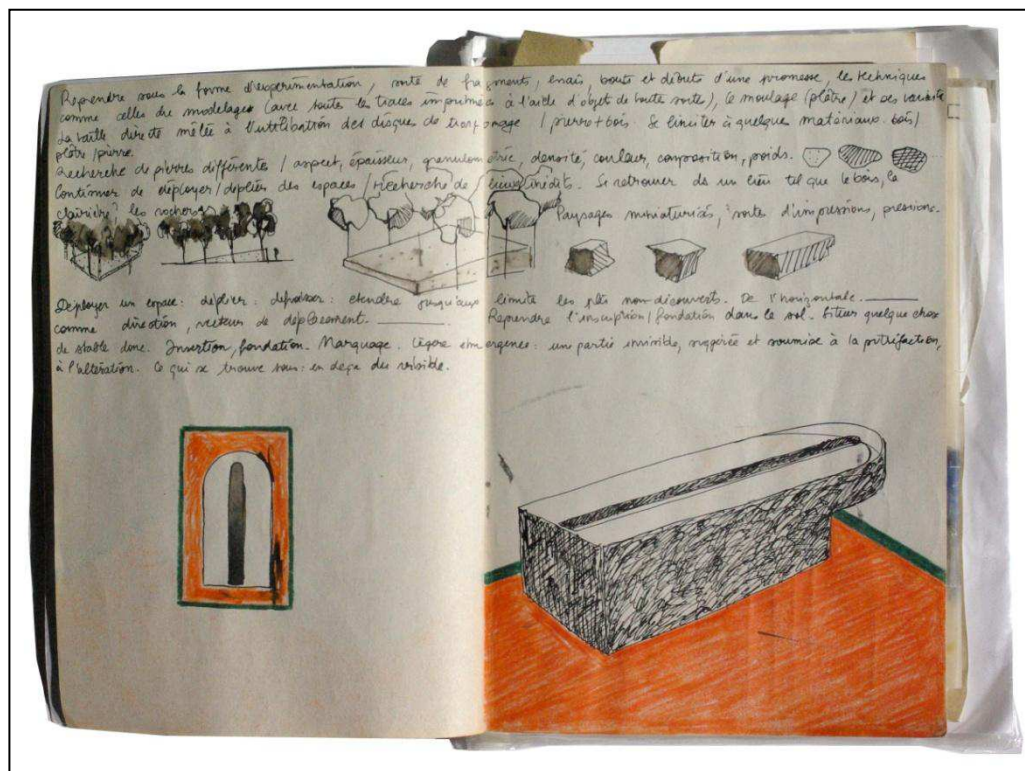 Reprendre sous la forme d'expérimentation, sorte de fragments, essais, bouts et débuts d'une promesse, les techniques
comme celles du modelage (avec toutes les traces imprimées à l'aide d'objet de toute sorte), le moulage (plâtre) et ses
La taille directe mêlée à l'utilisation des disques de tronçonnage / pierre + bois. Se limiter à quelques matériaux. bois/
plâtre/pierre.
Recherche de pierres différentes / aspect, épaisseur, granulométrie, densité, couleur, composition, poids.
Continuer de déployer/déplier des espaces / recherche de lieux inédits. Se retrouver ds un lieu tel que le bois, la
clairière, les rochers.
Paysages miniaturisés, sortes d'impressions, pressions.
Déployer un espace : déplier : dépasser : étendre jusqu'aux limite les plis non découverts. De l'horizontale.
comme direction, vecteur de déplacement. Reprendre l'inscription/fondation dans le sol. Situer quelque chose
de stable donc. Insertion, fondation. Marquage. Légère émergence : une partie invisible, suggérée et soumise à la putréfaction,
à l'altération. Ce qui se trouve sous : en deça du visible.